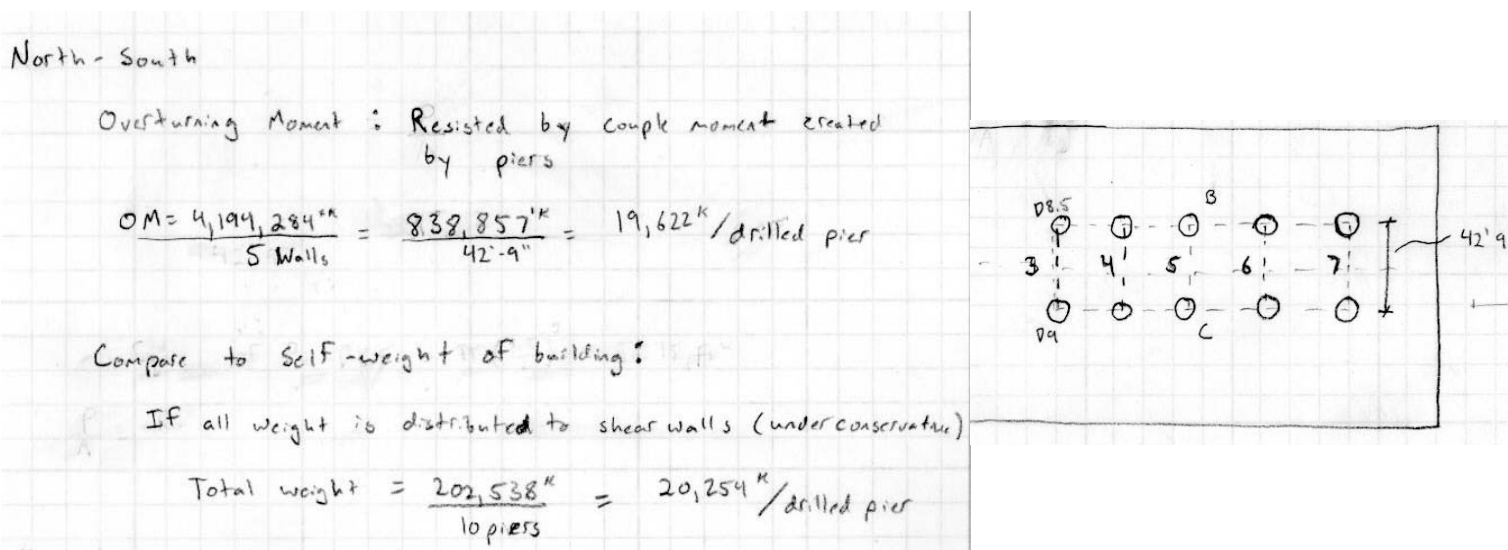 North - South
Overturning Moment : Resisted by couple moment created
by piers
OM = 4,194,284'ᴷ / 5 Walls = 838,857'ᴷ / 42'-9" = 19,622ᴷ/drilled pier
Compare to Self-weight of building :
If all weight is distributed to shear walls (under conservative)
Total weight = 202,538ᴷ / 10 piers = 20,254ᴷ/drilled pier
D8.5 B
3 4 5 6 7 42'9
D9 C